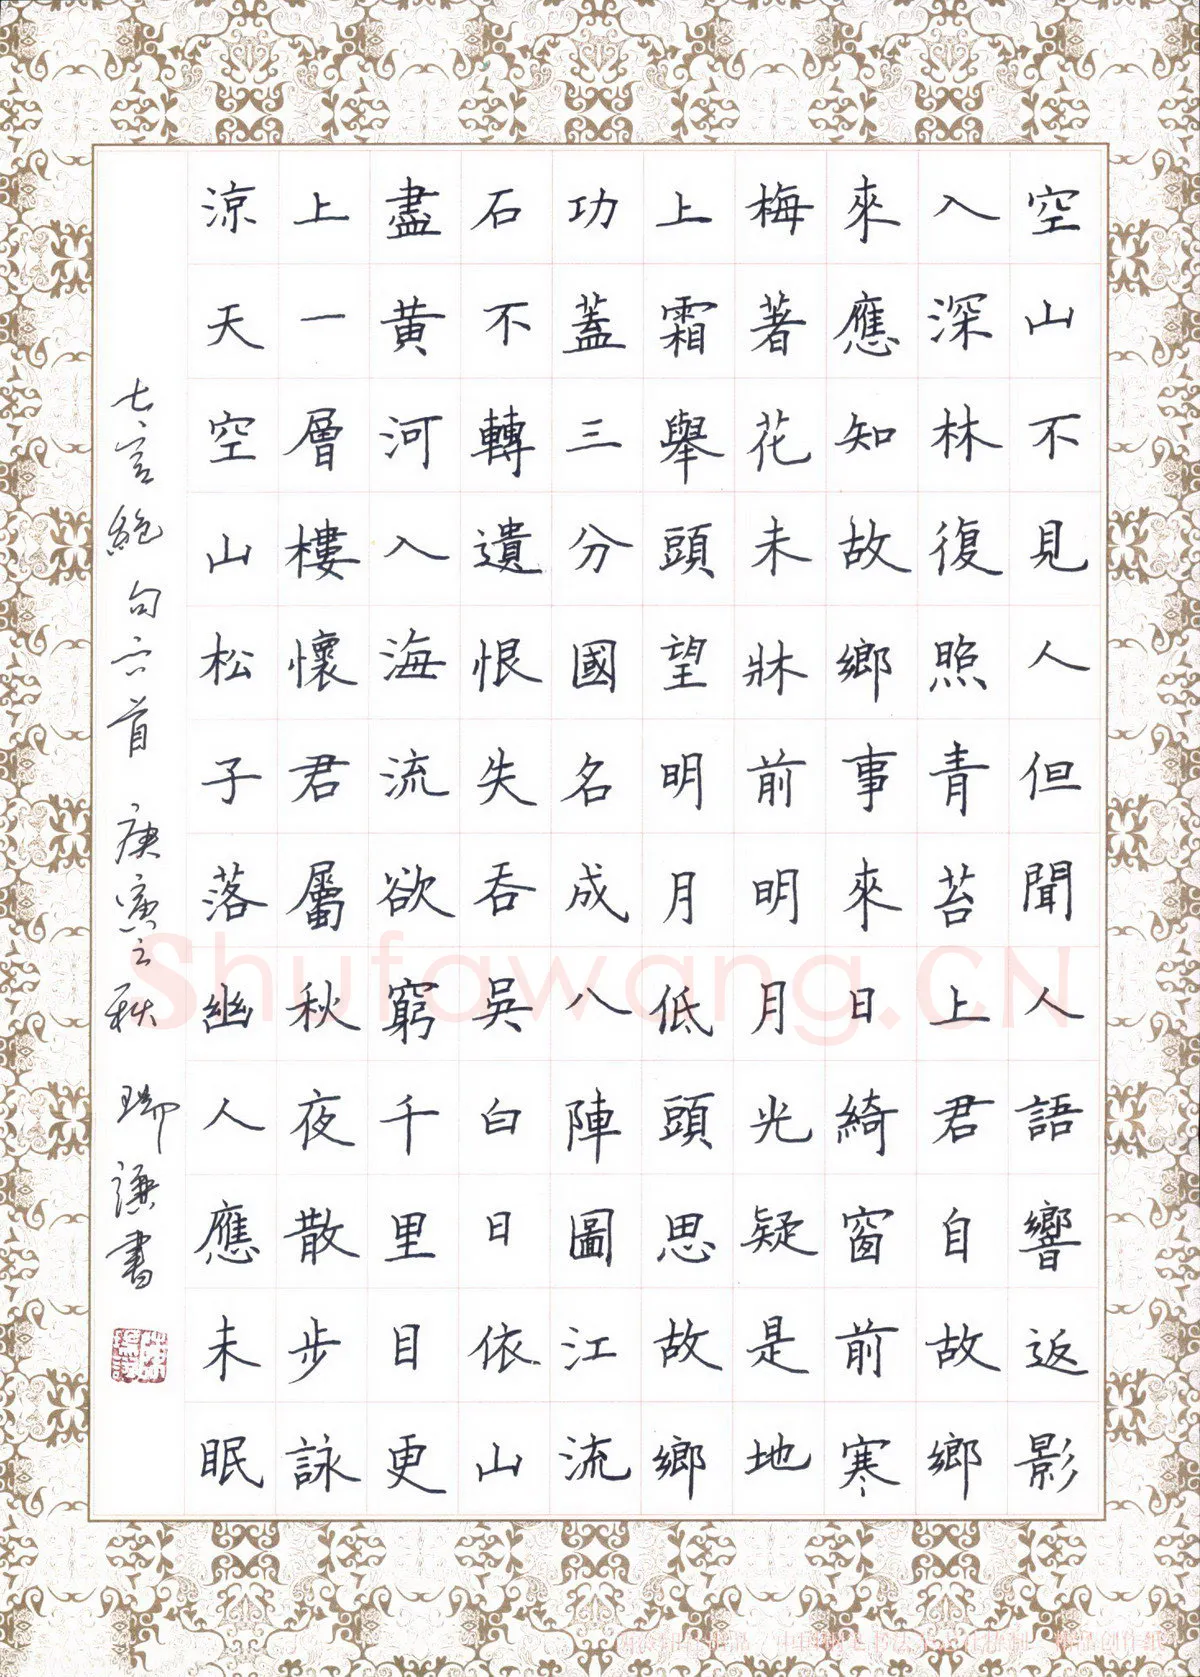 空山不見人但聞人語響返影
入深林復照青苔上君自故鄉
來應知故鄉事來日綺窗前寒
梅著花未牀前明月光疑是地
上霜舉頭望明月低頭思故鄉
功蓋三分國名成八陣圖江流
石不轉遺恨失吞吳白日依山
盡黃河入海流欲窮千里目更
上一層樓懷君屬秋夜散步詠
涼天空山松子落幽人應未眠
七言絕句六首 庚寅之秋 瑞謙書
Shufawang.CN